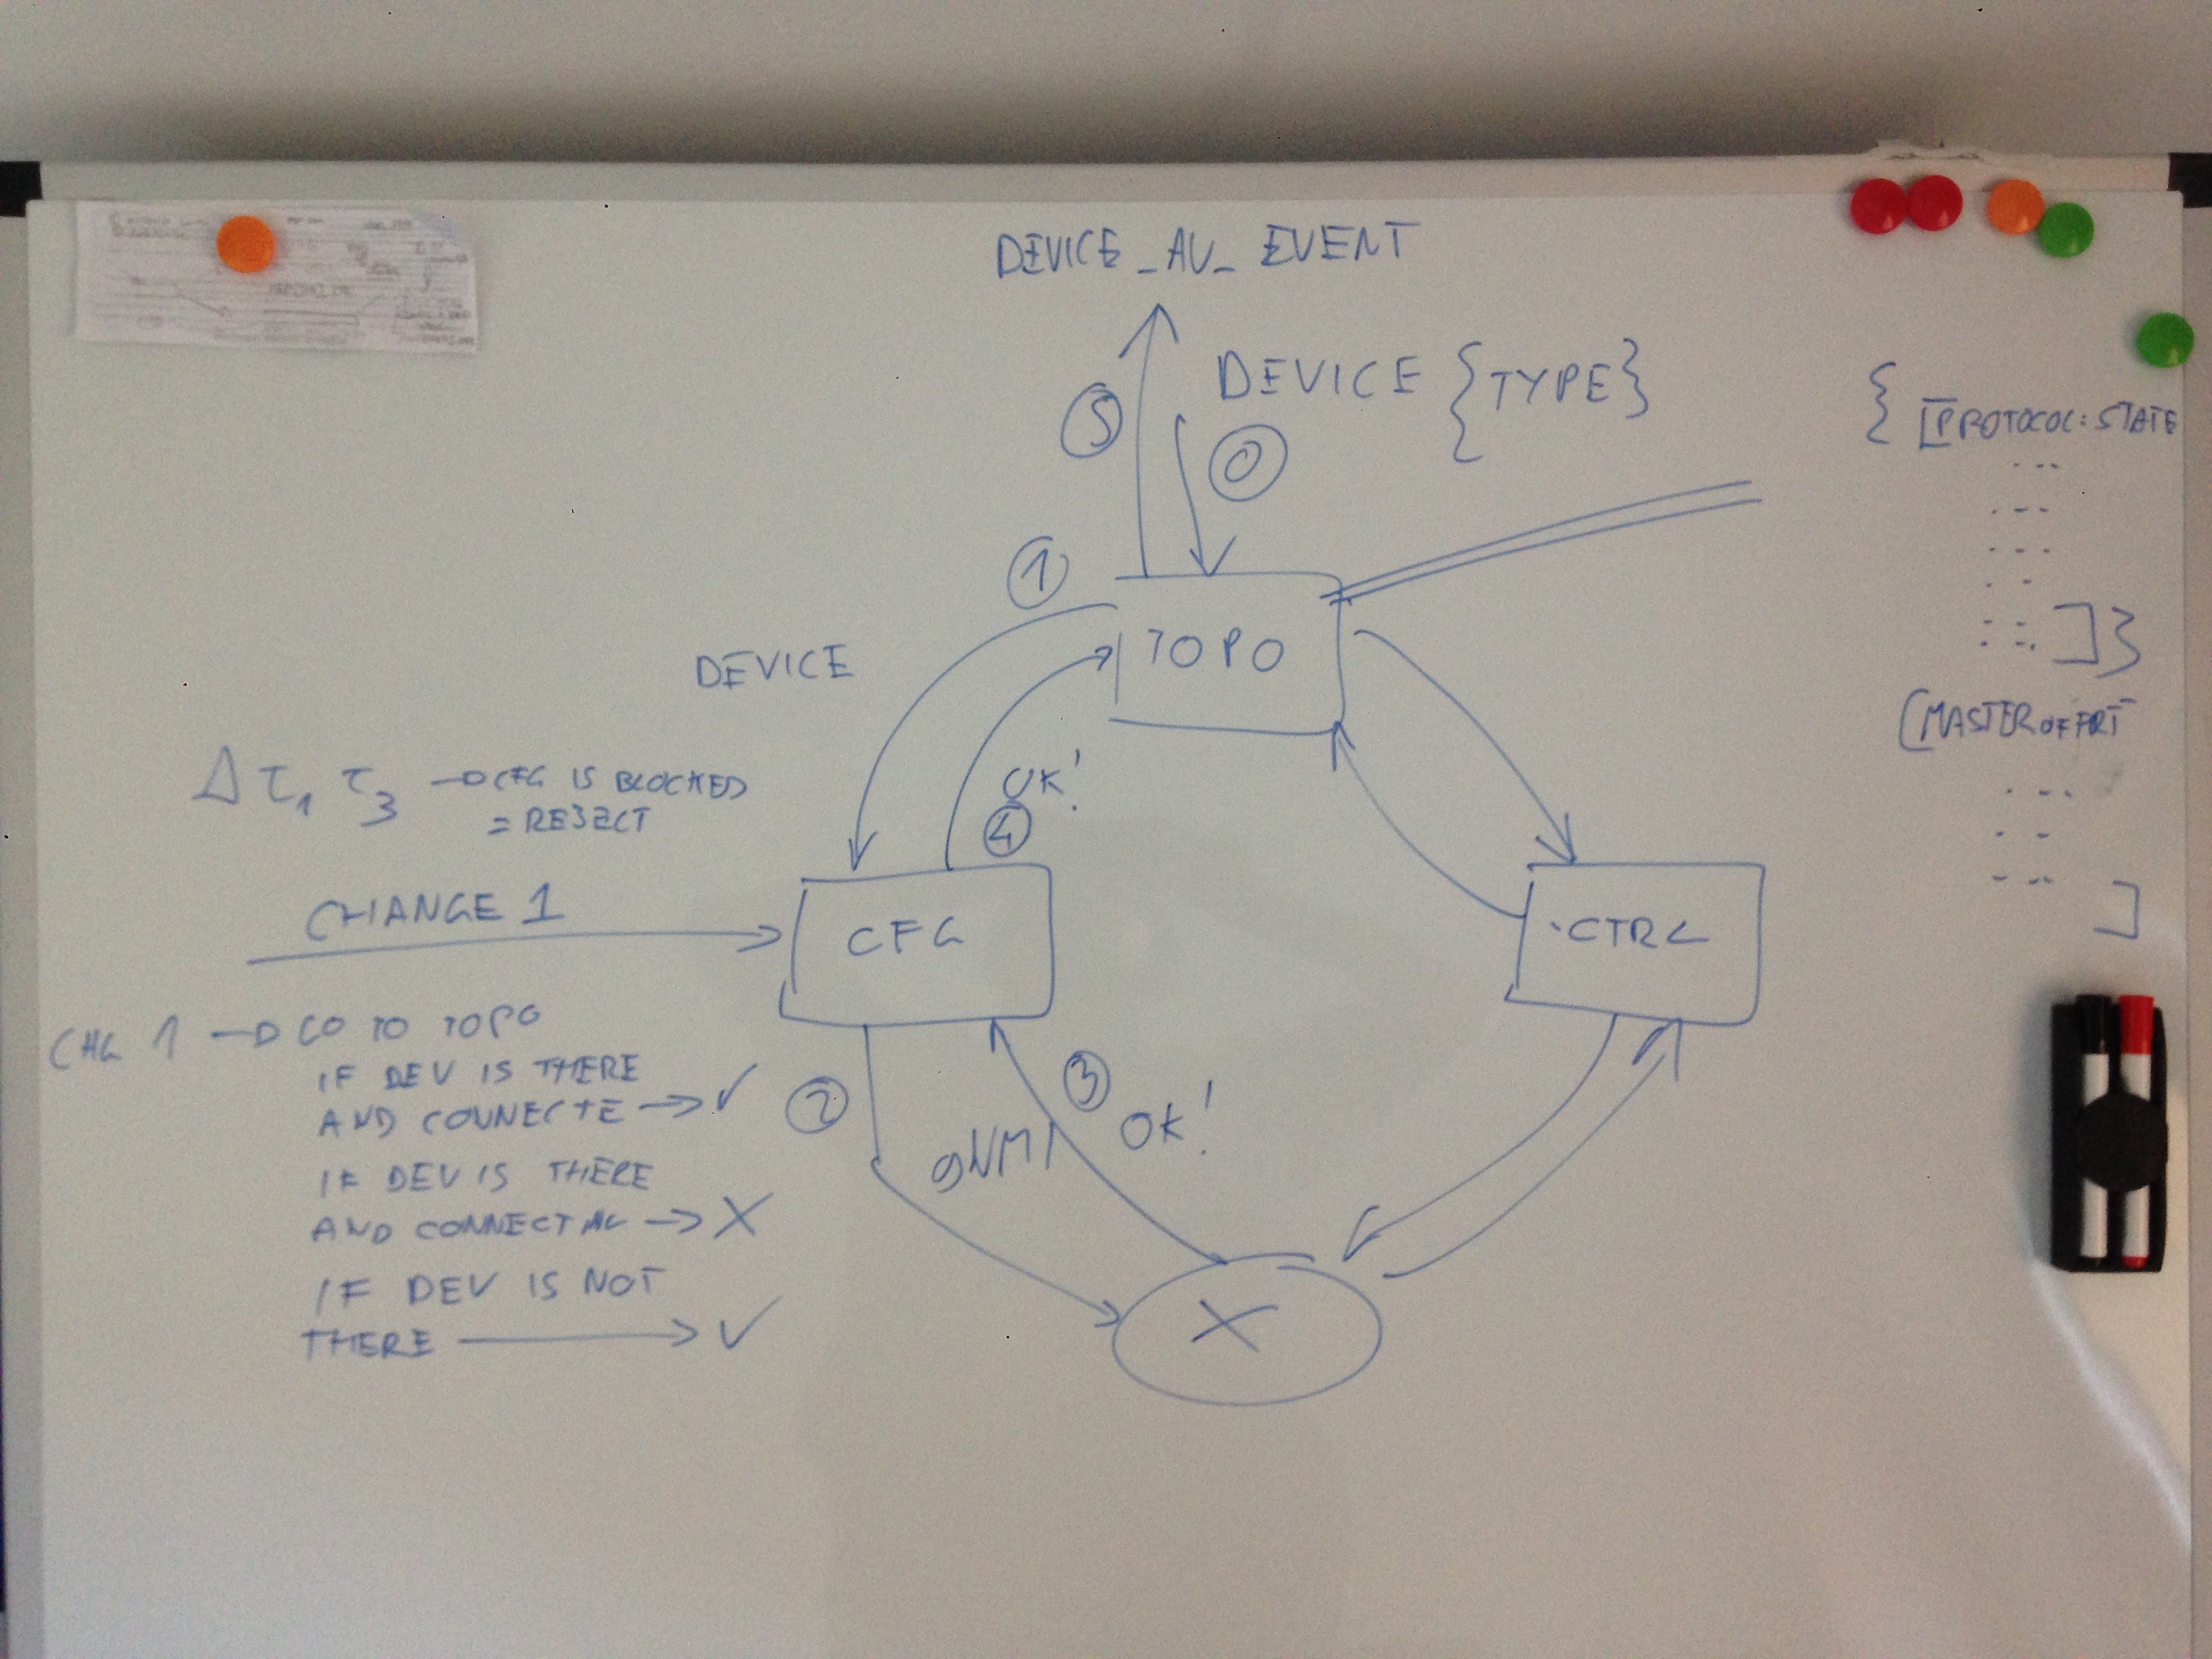 DEVICE_AV_EVENT
5
DEVICE {TYPE}
0
{ [PROTOCOL: STATE
...
...
...
]}
[MASTER OF PRT
...
]
1
TOPO
DEVICE
Δ τ1 τ3 → CFG IS BLOCKED
= REJECT
OK!
4
CHANGE 1
CFG
CTRL
CHG 1 → GO TO TOPO
IF DEV IS THERE
AND CONNECTE → ✓
2
3
OK!
gNMI
IF DEV IS THERE
AND CONNECT → X
IF DEV IS NOT
THERE → ✓
X